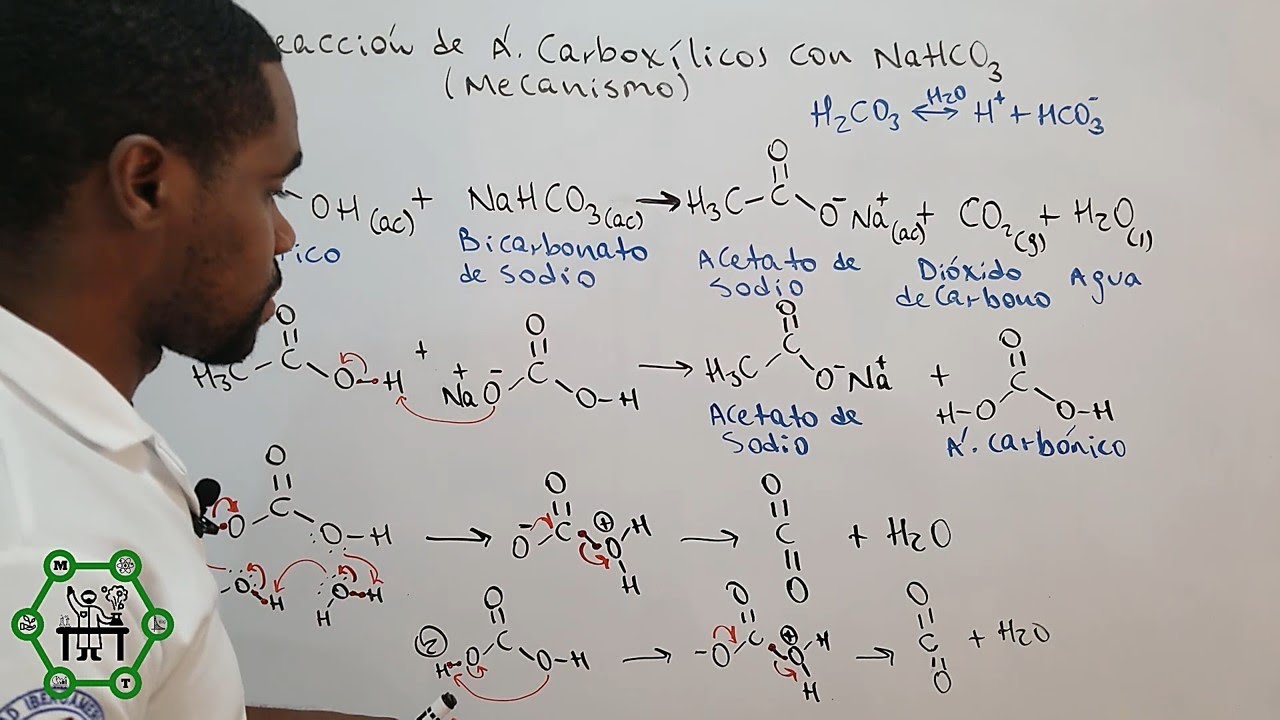 eacción de Á. Carboxílicos con NaHCO3
(Mecanismo)
H2CO3 ⇌ H2O H+ + HCO3-
OH(ac) + NaHCO3(ac) → H3C-C O O- Na+(ac) + CO2(g) + H2O(l)
rico Bicarbonato de Sodio Acetato de Sodio Dióxido de Carbono Agua
H3C C O O-H + Na+ O- C O O-H → H3C C O O- Na+ + H-O C O O-H
Acetato de Sodio Á. carbónico
O C O O-H → O O- C O+ H H → O C O + H2O
O H H O H
2 H-O C O O-H → -O C O O+ H H → O C O + H2O
M
T
D IBEROAM